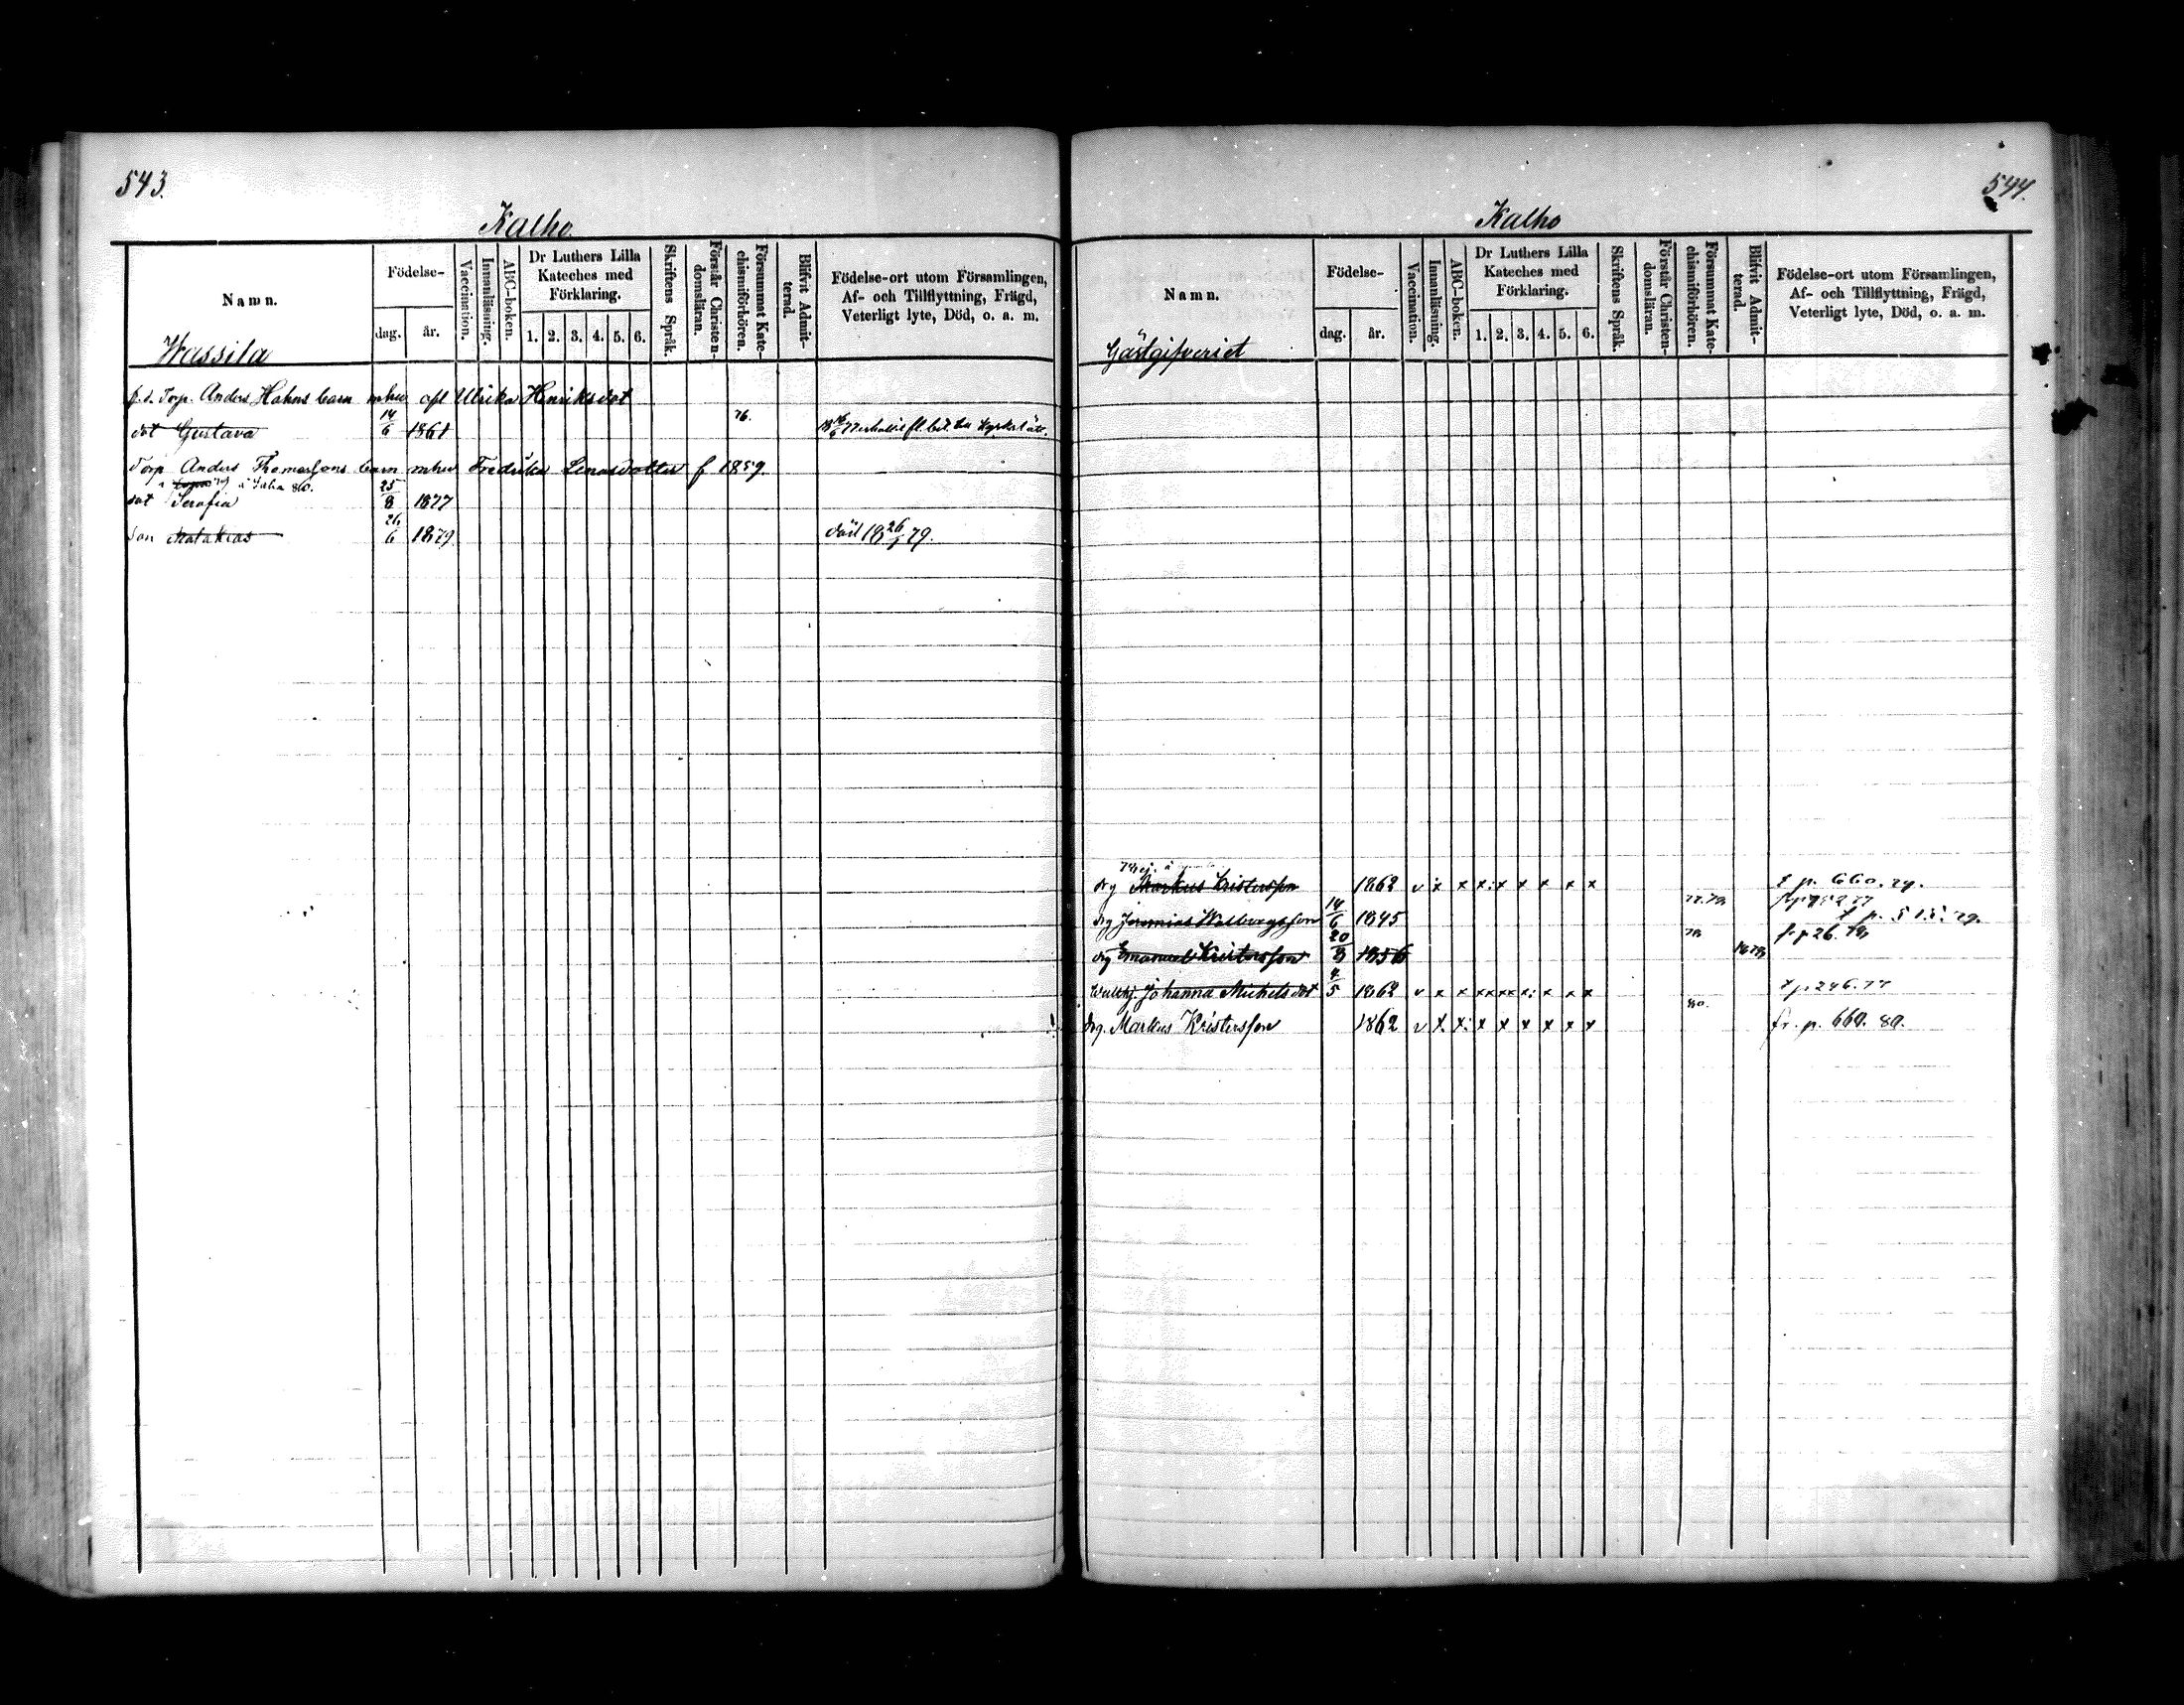 543.
Kalho.
Namn.
Födelse-
dag.
år.
Vaccination.
Innanläsning.
ABC-boken.
Dr Luthers Lilla
Kateches med
Förklaring.
1. 2. 3. 4. 5. 6.
Skriftens Språk.
Förstår Christen-
domsläran.
Försummat Kate-
chismiförhören.
Blifvit Admit-
terad.
Födelse-ort utom Församlingen,
Af- och Tillflyttning, Frägd,
Veterligt lyte, Död, o. a. m.
Wassila
f.d. Torp. Anders Hahns barn mhu afl Ulrika Henriksdot
dot Gustava 14/6 1861 76.
Torp Anders Thomassons barn mhu Fredrika Lenasdotter f 1859.
dot Serafia 25/8 1877
son Matakias 26/6 1879. död 18 26/ 79.
544.
Kalho
Namn.
Födelse-
dag.
år.
Vaccination.
Innanläsning.
ABC-boken.
Dr Luthers Lilla
Kateches med
Förklaring.
1. 2. 3. 4. 5. 6.
Skriftens Språk.
Förstår Christen-
domsläran.
Försummat Kate-
chismiförhören.
Blifvit Admit-
terad.
Födelse-ort utom Församlingen,
Af- och Tillflyttning, Frägd,
Veterligt lyte, Död, o. a. m.
Gästgifveriet
drg Markus Kristersson 1862 v x x x x x x x x t p. 660. 79.
drg Jeremias Walborgsson 14/6 1845 77.78. t p. 515. 79.
drg Emanuel Kristersson 20/8 1856 78. fr p 26. 78.
Johanna Michelsdot 4/5 1862 v x x x x x x x x x t p 246. 77
drg. Markus Kristersson 1862 v x x x x x x x x 80. fr. p. 660. 80.